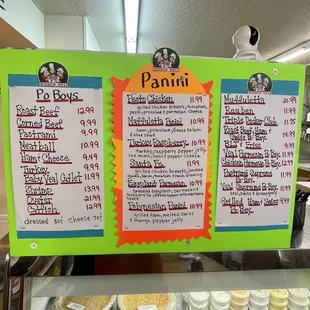 Po Boys
Roast Beef 12.99
Corned Beef 9.99
Pastrami 9.99
Meatball 10.99
Ham & Cheese 9.99
Turkey 9.99
Baby Veal Cutlet 11.99
Shrimp 13.99
Oyster 21.99
Catfish 12.99
dressed .50¢ cheese .70¢
Panini
Pesto Chicken 11.99
grilled chicken breasts, tomatoes,
pesto, provolone & parmesan cheese
Muffuletta Panini 10.99
ham, provolone, genoa salami
& olive salad
Turkey Raspberry 10.99
turkey, raspberry pepper jelly
red onions, swiss & pepper cheese
Santa Fe 11.99
grilled chicken breasts, smoked
gouda
Eggplant Parmesan 10.99
breaded eggplant
Polynesian Panini 10.99
grilled ham, melted swiss
& mango pepper jelly
Muffuletta 21.99
Reuben 11.99
Triple Decker Club 11.99
Roast Beef, Ham &
Cheese 14.99
9.99
Veal Parmesan Po Boy 12.99
Chicken Parmesan 12.99
Pastrami Supreme
Po Boy 11.99
Veal Supreme Po Boy 12.99
Grilled Ham & Swiss
Po Boy 9.99